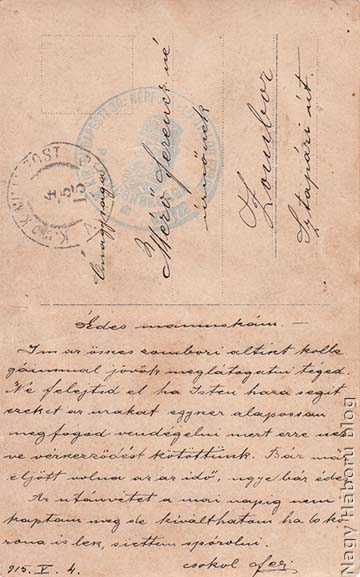 Őnagysága
Mérő Ferencz né
úrnőnek
Zombor
Sztapári út.
K. UND K. MILIT. POST
4
5
15
A
Édes mamuskám. —
Im az összes zombori altiszt kolle
gáimmal jövök meglátogatni téged.
Ne felejtsd el ha Isten haza segít
ezeket az urakat egyszer alapossan
megfogod vendégelni mert erre néz
ve szerződést kötöttünk. Bár már
eljött volna az az idő, ugye bár édes
Az utánvétet a mai napig nem
kaptam meg de kiválthatom ha 20 ko
rona is lesz, siettem spórolni.
915. V. 4. csokol Feri
Nagy Háború Blog